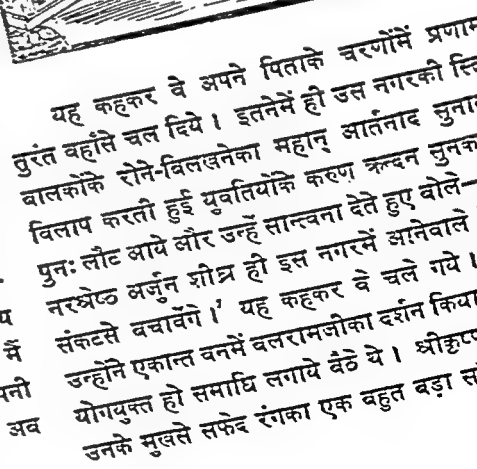 यह कहकर वे अपने पिताके चरणोंमें प्रणाम
तुरंत वहाँसे चल दिये । इतनेमें ही उस नगरकी
बालकोंके रोने-बिलखनेका महान् आर्तनाद
विलाप करती हुई युवतियोंके करुण क्रन्दन सुनकर
पुनः लौट आये और उन्हें सान्त्वना देते हुए बोले—
नरश्रेष्ठ अर्जुन शीघ्र ही इस नगरमें आनेवाले
य
संकटसे बचावेंगे।’ यह कहकर वे चले गये ।
में
उन्होंने एकान्त वनमें बलरामजीका दर्शन किया
पनी
योगयुक्त हो समाधि लगाये बैठे थे । श्रीकृष्ण
अब
उनके मुखसे सफेद रंगका एक बहुत बड़ा